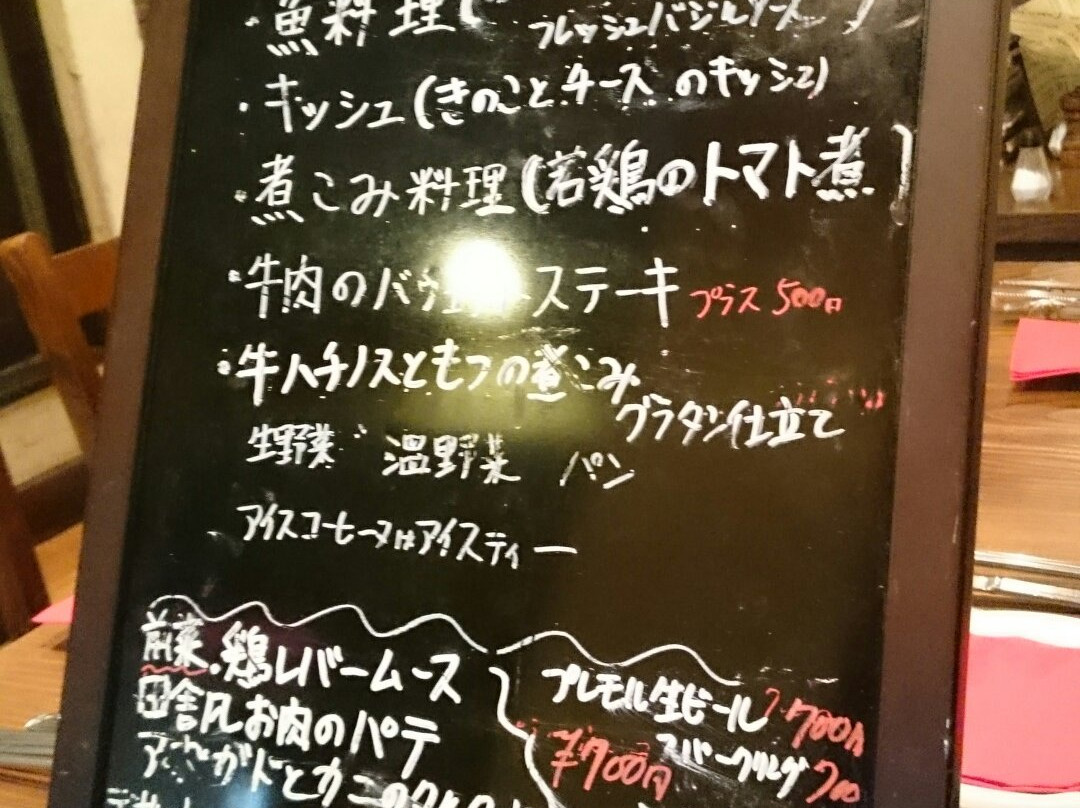 ・魚料理(
フレッシュバジルソース )
・キッシュ(きのことチーズのキッシュ)
・煮こみ料理(若鶏のトマト煮)
・牛肉のバヴェットステーキ プラス500円
・牛ハチノスともつの煮こみ
グラタン仕立て
生野菜 温野菜 パン
アイスコーヒー又はアイスティー
前菜・鶏レバームース
田舎風お肉のパテ
アボカドとカニの
プレモル生ビール 700円
¥700円
スパークリング 700